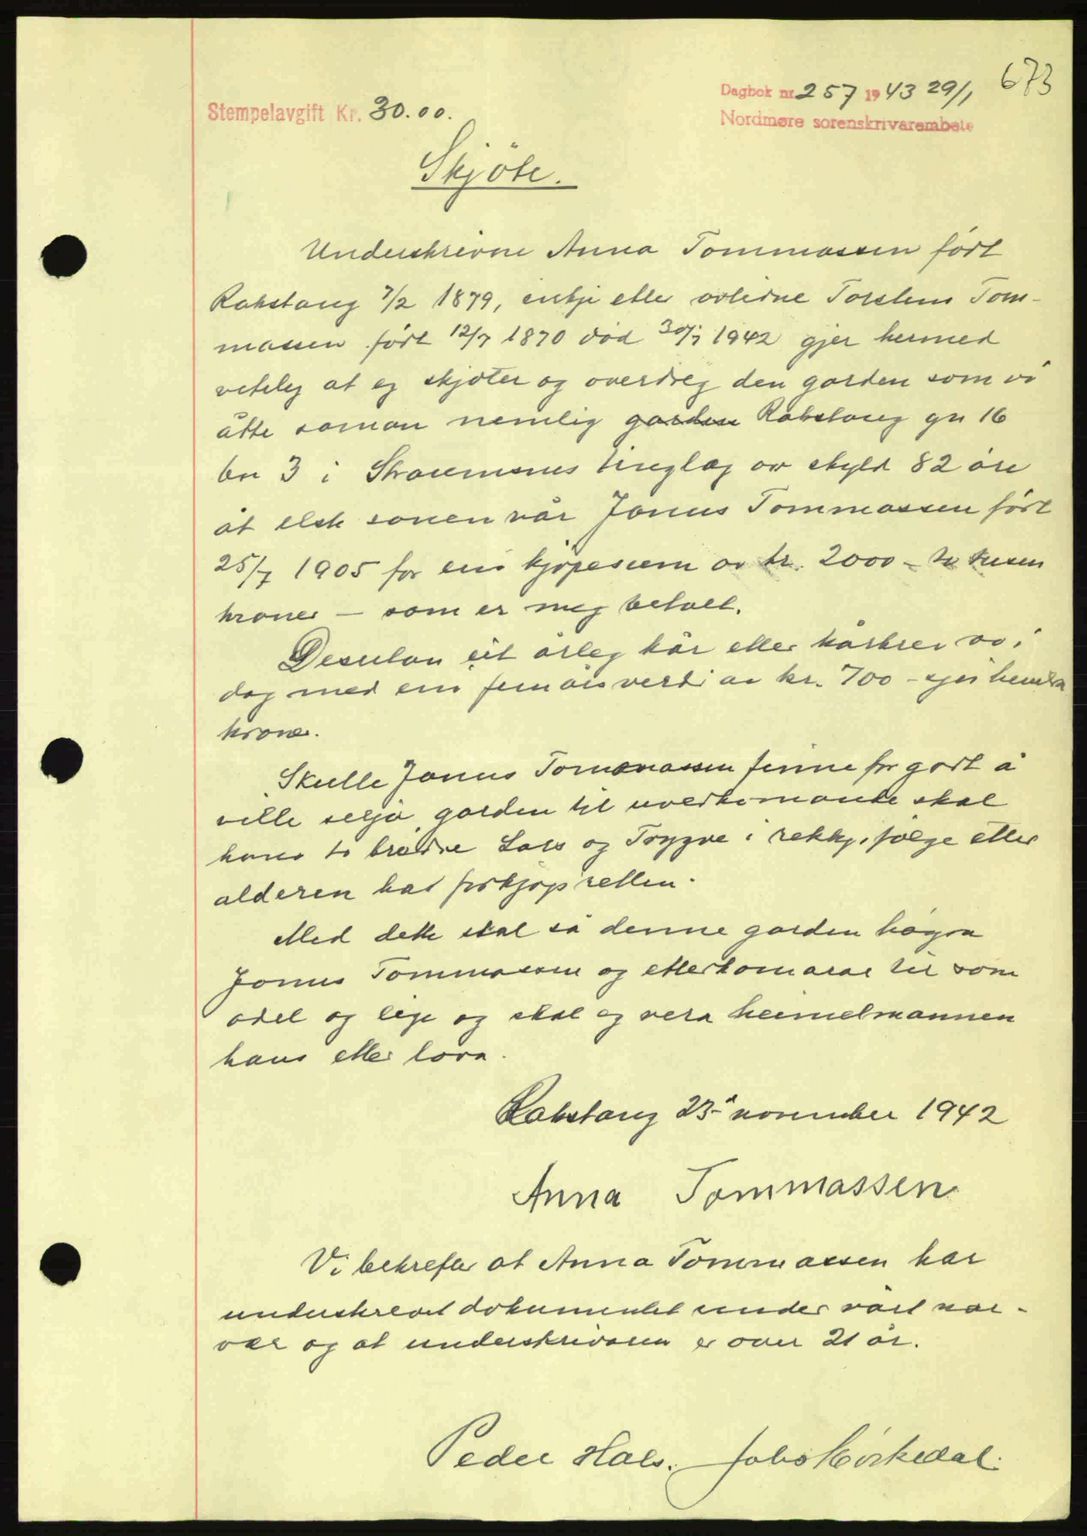 673
Dagbok nr. 257 1943 29/1
Stempelavgift Kr. 30.00.
Nordmøre sorenskrivarembete
Skjöte.
Underskrivne Anna Tommassen født
Rakstang 7/2 1879, enkje etter avlidne Torstein Tom-
massen født 12/7 1870 död 30/7 1942 gjer hermed
viteleg at eg skjöter og overdreg den garden som vi
åtte saman nemlig garden Rakstang gn 16
bn 3 i Straumsnes tinglag av skyld 82 öre
åt elste sonen vår Jonus Tommassen født
25/7 1905 for ein kjöpesum av kr. 2000 – to tusen
kroner – som er meg betalt.
Desutan eit årleg kår etter kårbrev av i
dag med ein femårsverdi av kr. 700 – sju hundra
kroner.
Skulle Jonus Tommassen finne for godt å
ville selja garden til uvedkomande skal
hans to brødre Lars og Trygve i rekkjefølge etter
alderen ha forkjöpsretten.
Med dette skal så denne garden höyra
Jonus Tommassen og etterkomarar til som
odel og eige og skal eg vera heimelmannen
hans etter lova.
Rakstang 23 november 1942
Anna Tommassen
Vi bekrefter at Anna Tommassen har
underskrevet dokumentet under vårt nær-
vær og at underskrivaren er over 21 år.
Peder Hals. Johs Kirkedal.